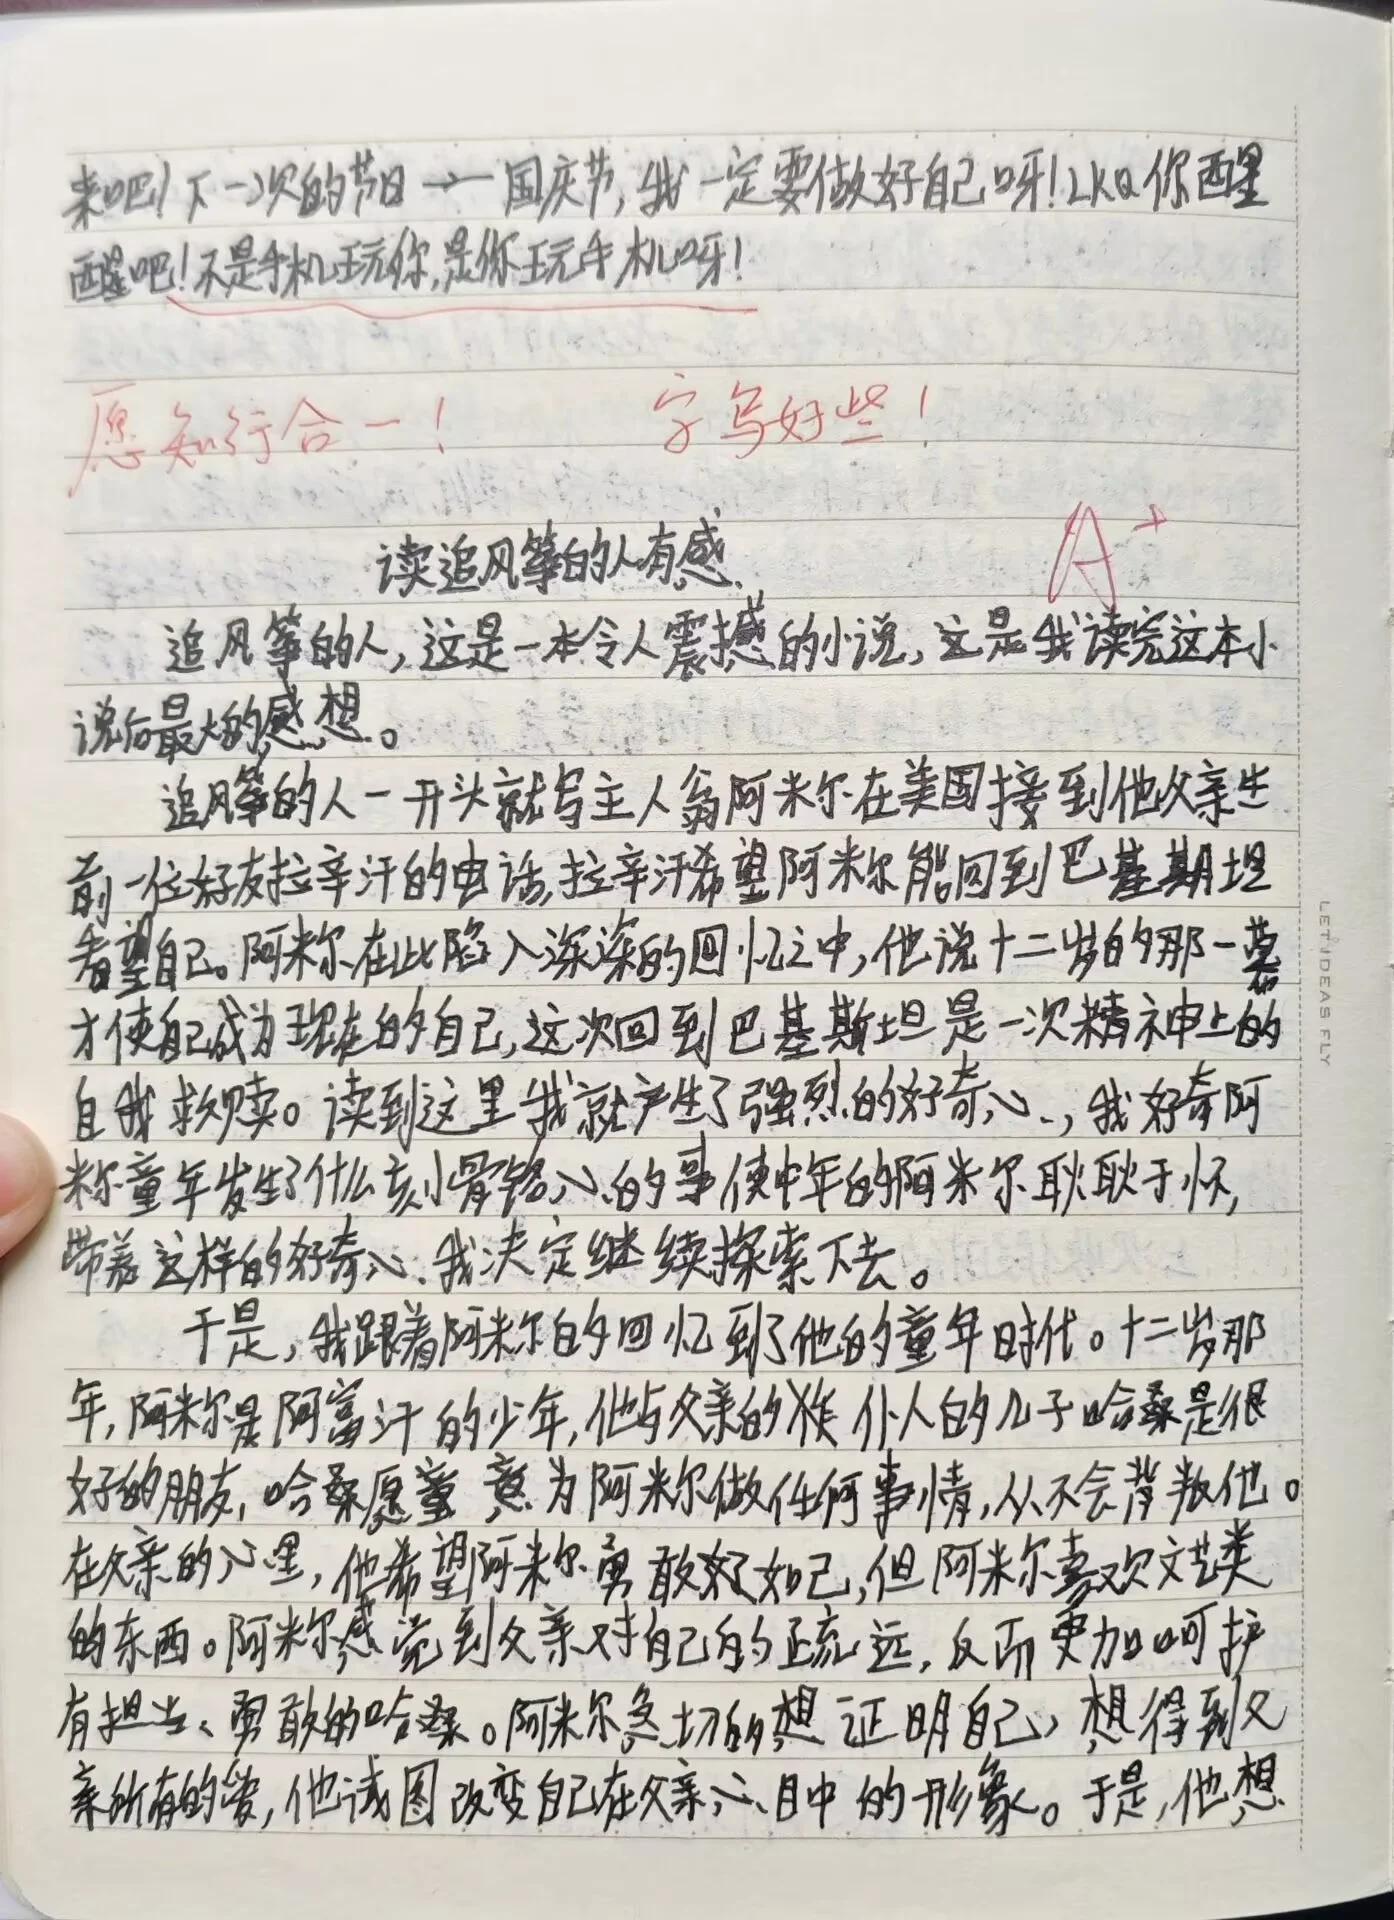 来吧!下一次的节日——国庆节,我一定要做好自己呀!LKQ你醒
醒吧!不是手机玩你,是你玩手机呀!
愿知行合一! 字写好些!
读追风筝的人有感
A+
追风筝的人,这是一本令人震撼的小说,这是我读完这本小
说后最大的感想。
追风筝的人一开头就写主人翁阿米尔在美国接到他父亲生
前一位好友拉辛汗的电话,拉辛汗希望阿米尔能回到巴基斯坦
看望自己。阿米尔在此陷入深深的回忆之中,他说十二岁的那一幕
才使自己成为现在的自己,这次回到巴基斯坦是一次精神上的
自我救赎。读到这里我就产生了强烈的好奇心,我好奇阿
米尔童年发生了什么刻骨铭心的事使中年的阿米尔耿耿于怀,
带着这样的好奇心,我决定继续探索下去。
于是,我跟着阿米尔的回忆到了他的童年时代。十二岁那
年,阿米尔是阿富汗的少年,他与父亲的仆人的儿子哈桑是很
好的朋友,哈桑愿意为阿米尔做任何事情,从不会背叛他。
在父亲的心里,他希望阿米尔勇敢如己,但阿米尔喜欢文艺类
的东西。阿米尔感觉到父亲对自己的疏远,反而更加呵护
有担当、勇敢的哈桑。阿米尔急切的想证明自己,想得到父
亲所有的爱,他试图改变自己在父亲心目中的形象。于是,他想
LET IDEAS FLY